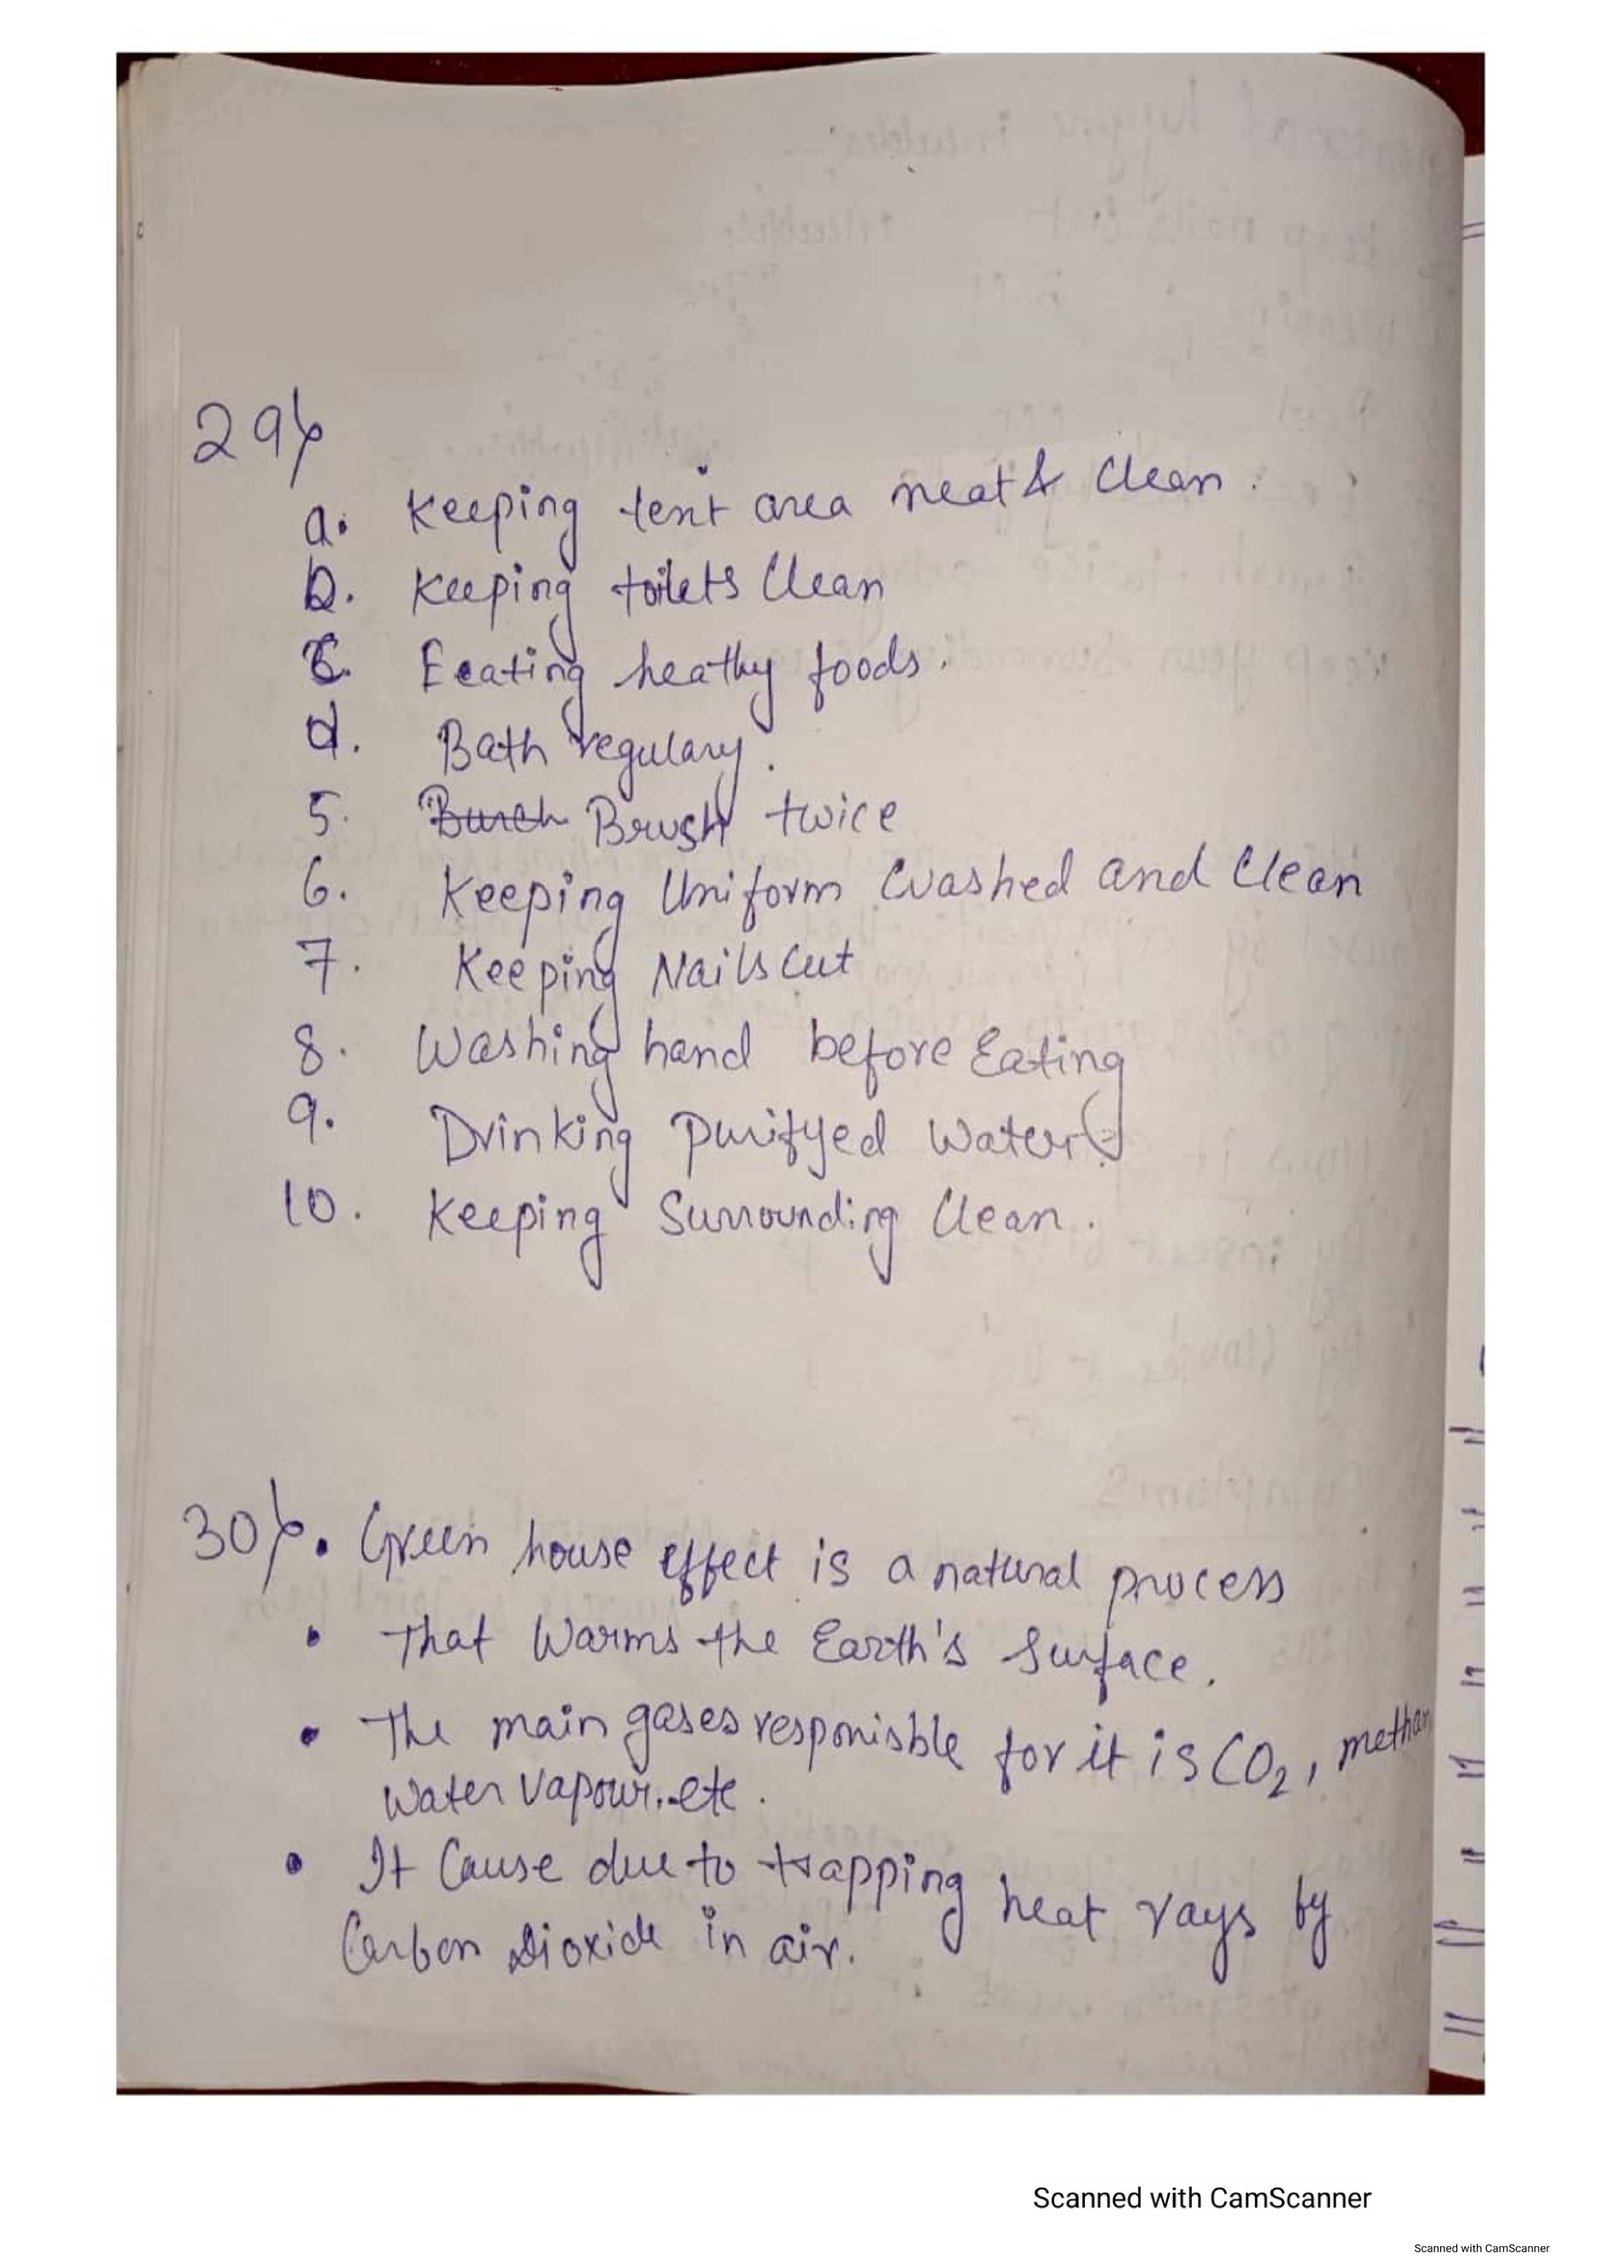 29)
a. Keeping tent area neat & Clean.
b. Keeping toilets Clean
c. Eeating heathy foods.
d. Bath regulary.
5. Burch Brush twice
6. Keeping Uniform Washed and Clean
7. Keeping Nails Cut
8. Washing hand before Eating
9. Drinking Purifyed Water
10. Keeping Surrounding Clean.
30) • Green house effect is a natural process
• That Warms the Earth's Surface.
• The main gases responisble for it is CO2, methan
Water Vapour. etc.
• It Cause due to trapping heat rays by
Carbon Dioxide in air.
Scanned with CamScanner
Scanned with CamScanner